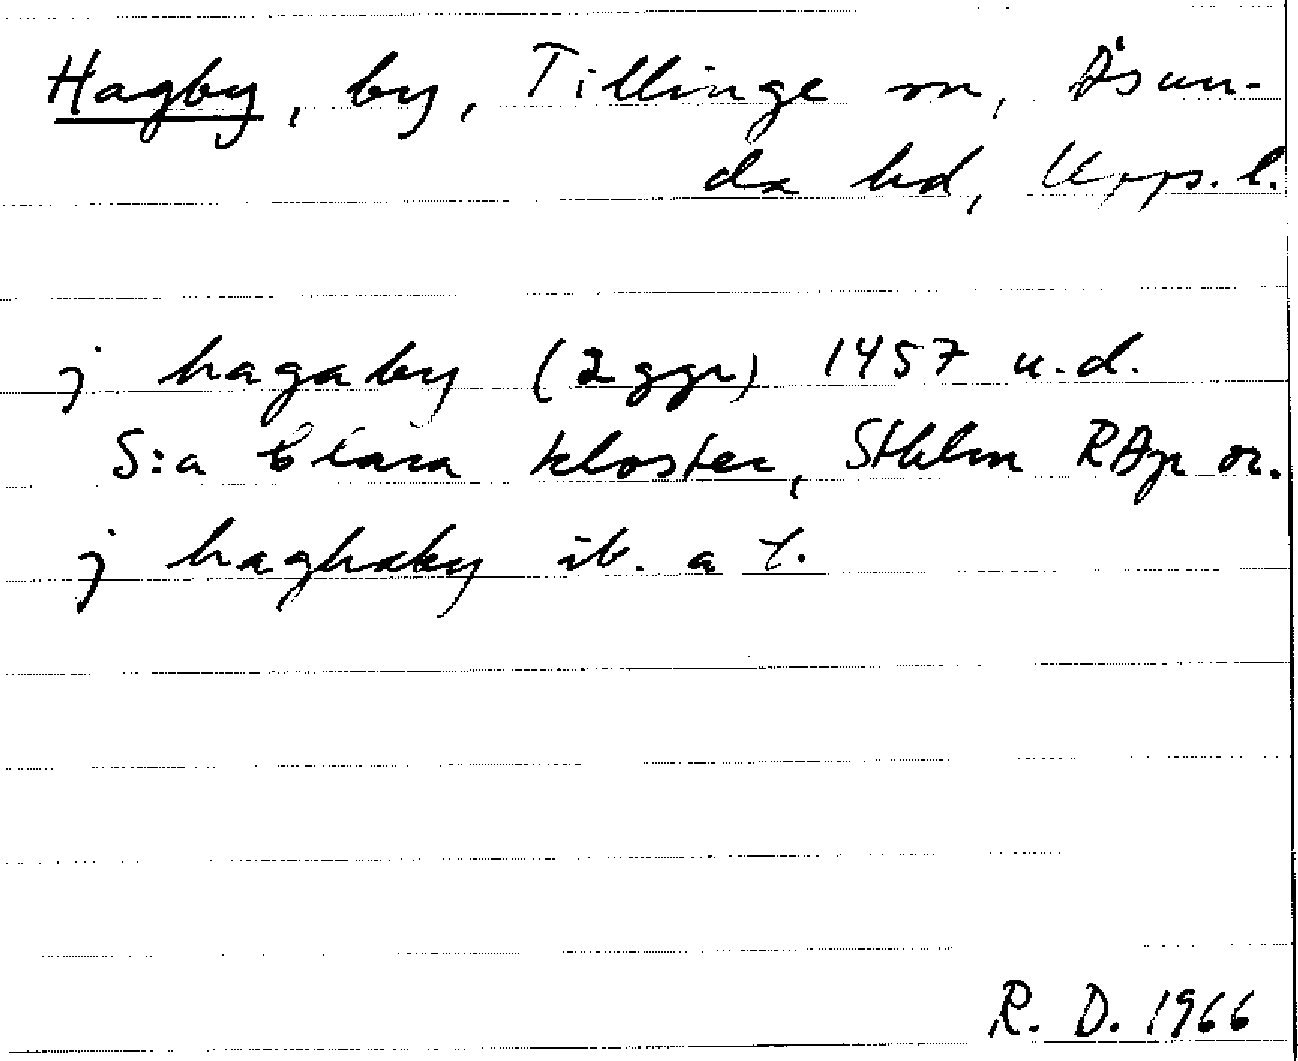 Hagby, by, Tillinge sn, Åsun-
da hd, Upps. l.
j hagaby (2 ggr) 1457 u.d.
S:a Clara kloster, Sthlm RAp or.
j haghaby ib. a t.
R. D. 1966